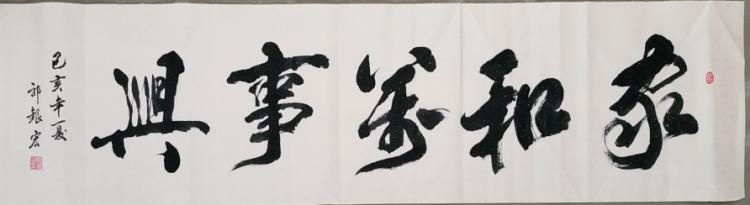 家和萬事興
己亥年夏
郭銀宏